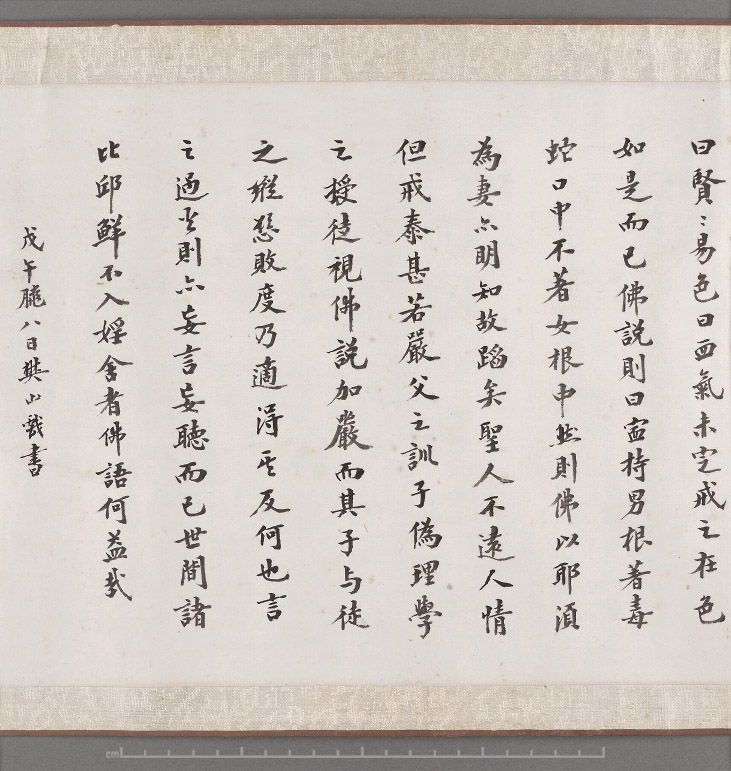 曰賢〻易色曰血氣未定戒之在色
如是而已佛說則曰甯持男根著毒
蛇口中不著女根中然則佛以耶須
為妻亦明知故蹈矣聖人不遠人情
但戒泰甚若嚴父之訓子偽理學
之授徒視佛說加嚴而其子与徒
之縱慾敗度乃適得其反何也言
之過當則亦妄言妄聽而已世間諸
比邱鮮不入婬舍者佛語何益哉
戊午臘八日樊山戲書
cm